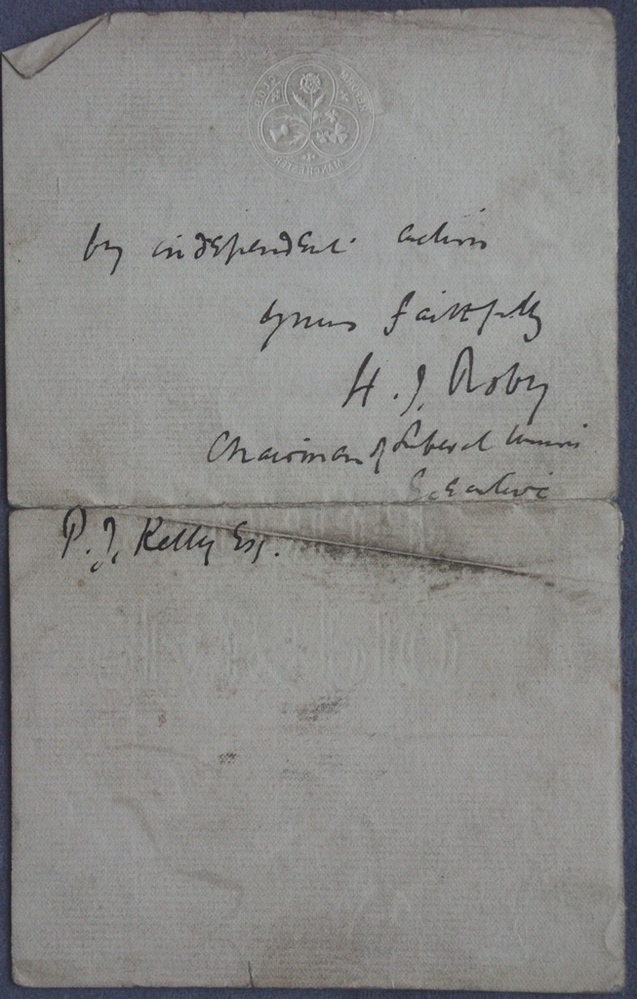 REFORM CLUB
MANCHESTER
by independent action
yours faithfully
H. J. Roby
Chairman of Liberal Union
Executive
P. J. Kelly Esq.